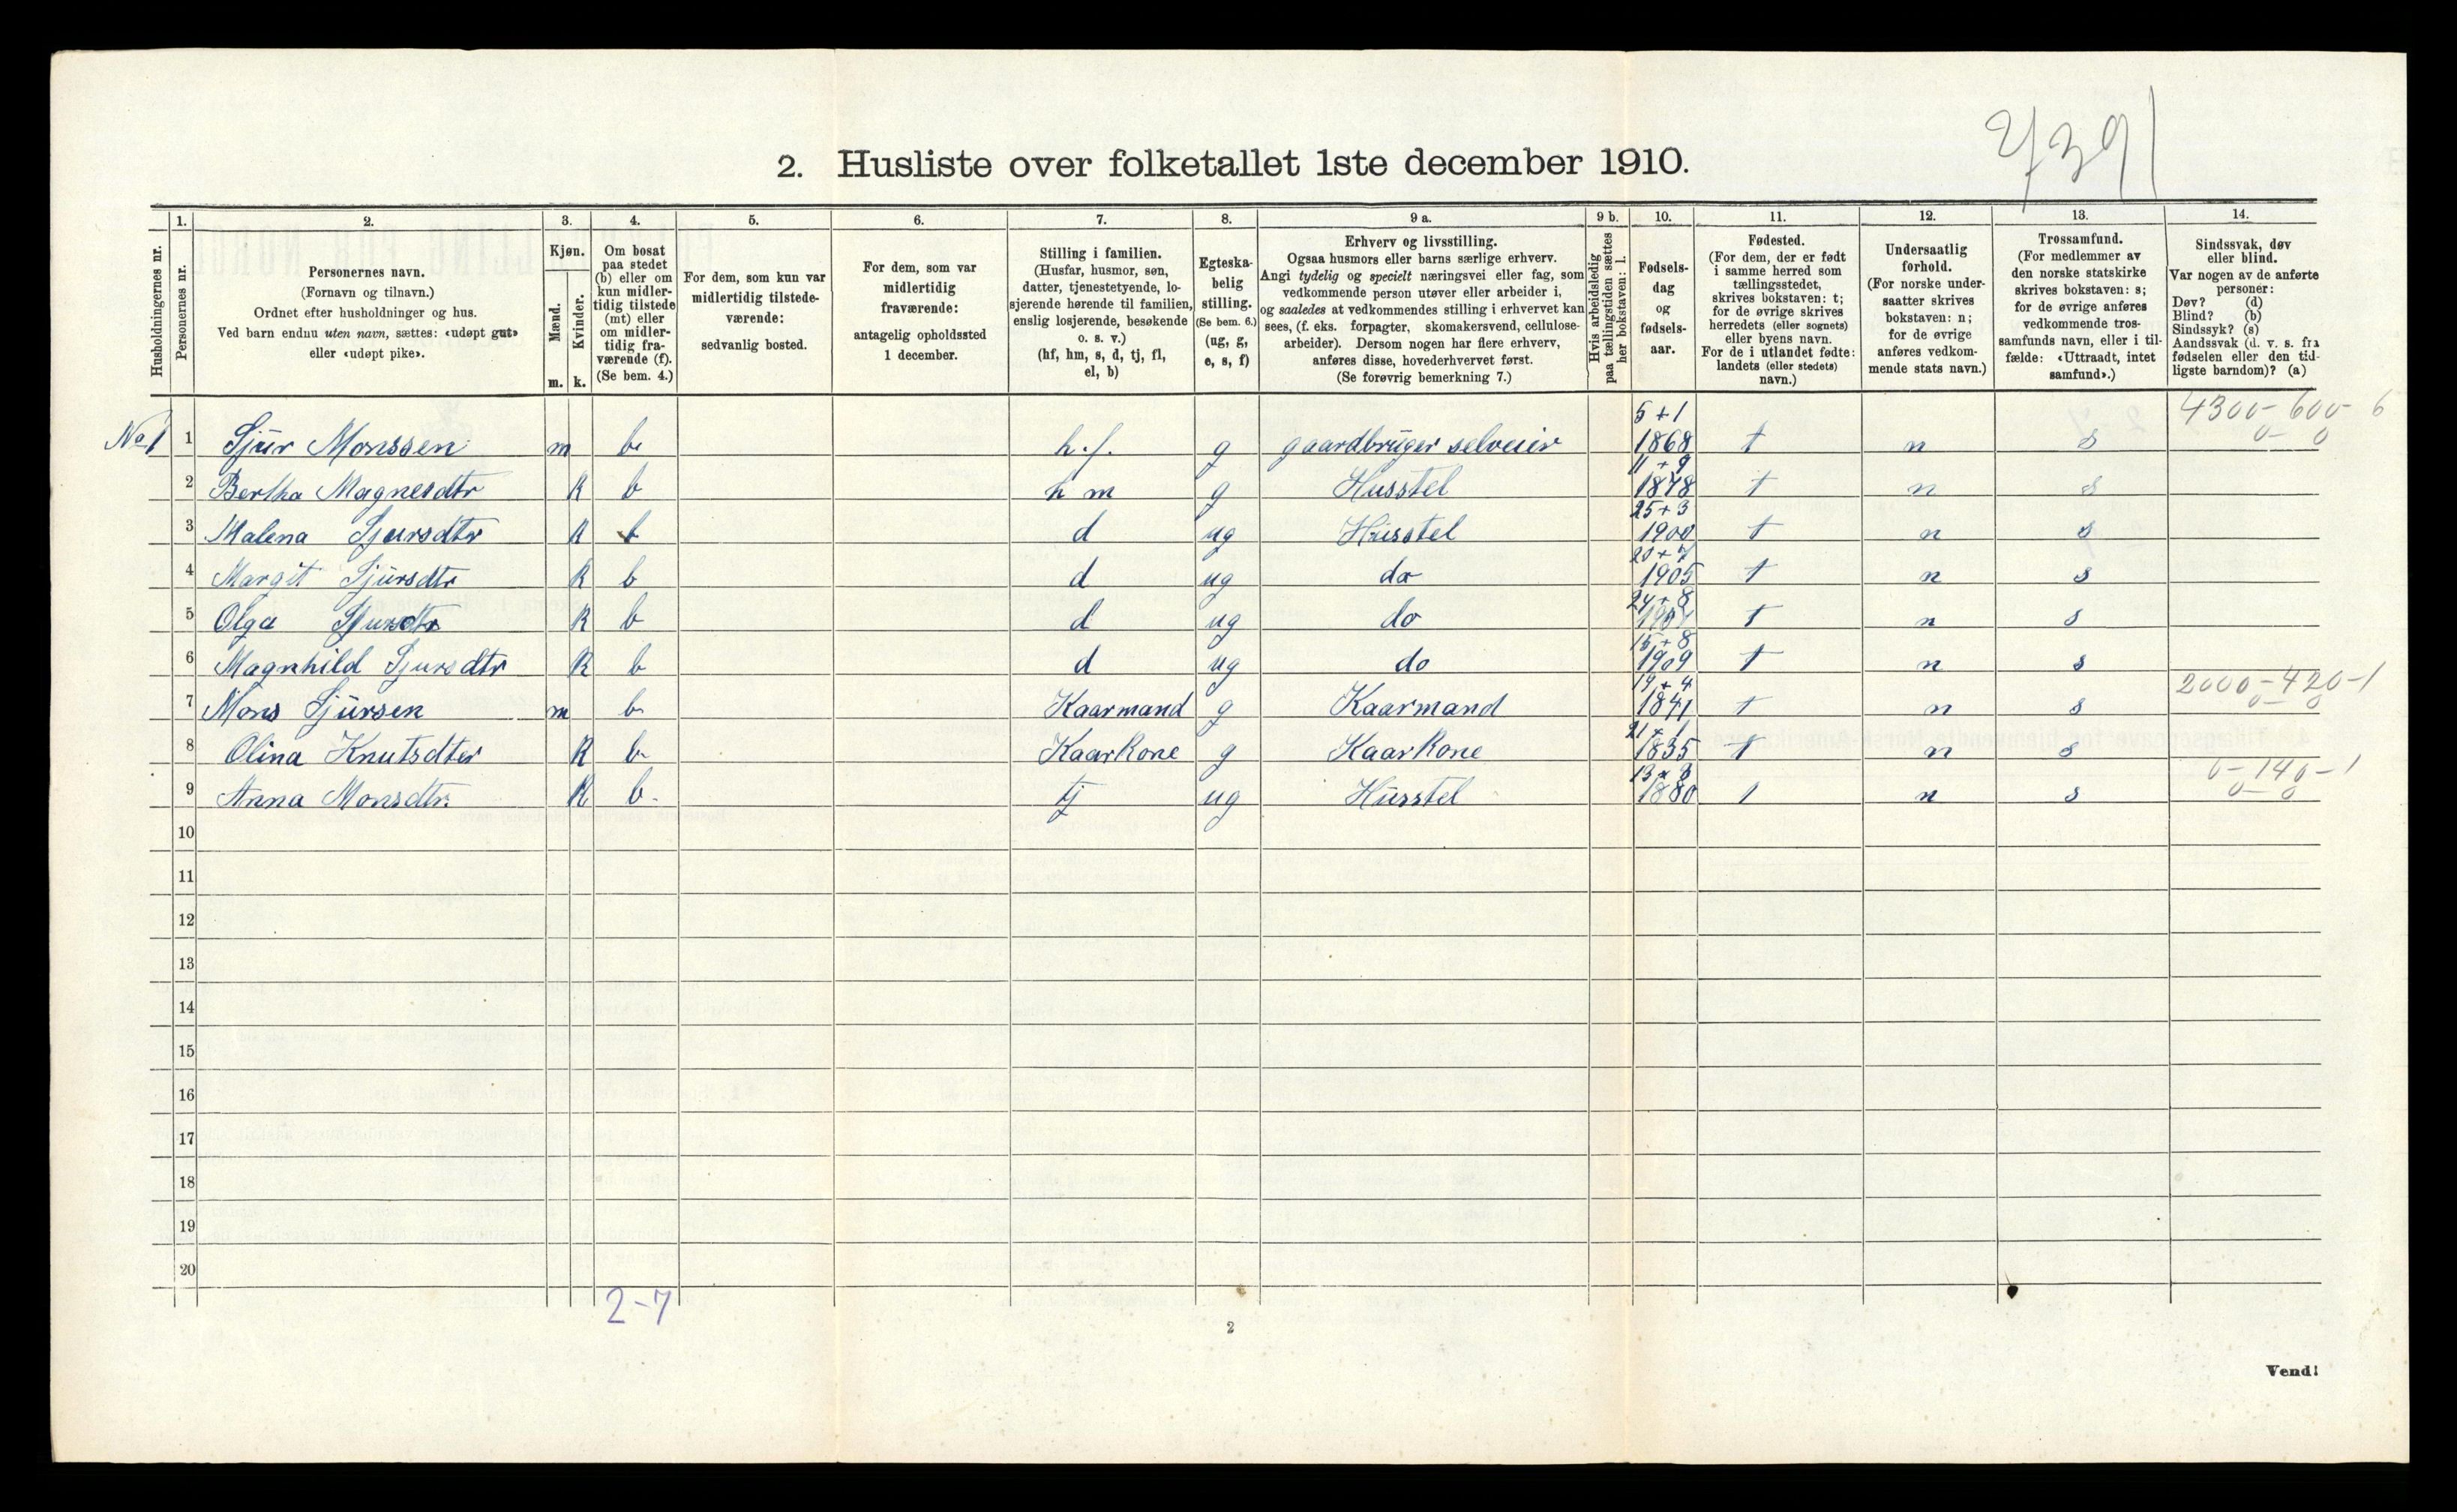 2. Husliste over folketallet 1ste december 1910.
1. 2. 3. 4. 5. 6. 7. 8. 9 a. 9 b. 10. 11. 12. 13. 14.
Husholdningernes nr.
Personernes nr.
Personernes navn.
(Fornavn og tilnavn.)
Ordnet efter husholdninger og hus.
Ved barn endnu uten navn, sættes: «udøpt gut»
eller «udøpt pike».
Kjøn.
Mænd.
Kvinder.
m. k.
Om bosat
paa stedet
(b) eller om
kun midler-
tidig tilstede
(mt) eller
om midler-
tidig fra-
værende (f).
(Se bem. 4.)
For dem, som kun var
midlertidig tilstede-
værende:
sedvanlig bosted.
For dem, som var
midlertidig
fraværende:
antagelig opholdssted
1 december.
Stilling i familien.
(Husfar, husmor, søn,
datter, tjenestetyende, lo-
sjerende hørende til familien,
enslig losjerende, besøkende
o. s. v.)
(hf, hm, s, d, tj, fl,
el, b)
Egteska-
belig
stilling.
(Se bem. 6.)
(ug, g,
e, s, f)
Erhverv og livsstilling.
Ogsaa husmors eller barns særlige erhverv.
Angi tydelig og specielt næringsvei eller fag, som
vedkommende person utøver eller arbeider i,
og saaledes at vedkommendes stilling i erhvervet kan
sees, (f. eks. forpagter, skomakersvend, cellulose-
arbeider). Dersom nogen har flere erhverv,
anføres disse, hovederhvervet først.
(Se forøvrig bemerkning 7.)
Hvis arbeidsledig
paa tællingstiden sættes
her bokstaven: l.
Fødsels-
dag
og
fødsels-
aar.
Fødested.
(For dem, der er født
i samme herred som
tællingsstedet,
skrives bokstaven: t;
for de øvrige skrives
herredets (eller sognets)
eller byens navn.
For de i utlandet fødte:
landets (eller stedets)
navn.)
Undersaatlig
forhold.
(For norske under-
saatter skrives
bokstaven: n;
for de øvrige
anføres vedkom-
mende stats navn.)
Trossamfund.
(For medlemmer av
den norske statskirke
skrives bokstaven: s;
for de øvrige anføres
vedkommende tros-
samfunds navn, eller i til-
fælde: «Uttraadt, intet
samfund».)
Sindssvak, døv
eller blind.
Var nogen av de anførte
personer:
Døv? (d)
Blind? (b)
Sindssyk? (s)
Aandssvak (d. v. s. fra
fødselen eller den tid-
ligste barndom)? (a)
5+1 4300-600-6
No 1 1 Sjur Monssen m b h.f. g gaardbruger selveier 1868 t n s 0-0
11+9
2 Bertha Magnesdtr K b h m g Husstel 1878 t n s
25+3
3 Malena Sjursdtr K b d ug Husstel 1900 t n s
20+7
4 Margit Sjursdtr K b d ug do 1905 t n s
24+8
5 Olga Sjursdtr K b d ug do t n s
15+8
6 Magnhild Sjursdtr K b d ug do 1909 t n s
19+4 2000-420-1
7 Mons Sjursen m b Kaarmand g Kaarmand 1841 t n s 0-0
21+1
8 Olina Knutsdter K b Kaarkone g Kaarkone 1835 t n s
13+3 0-140-1
9 Anna Monsdtr. K b. tj ug Husstel 1880 t n s 0-0
10
11
12
13
14
15
16
17
18
19
20
2-7
2
Vend!